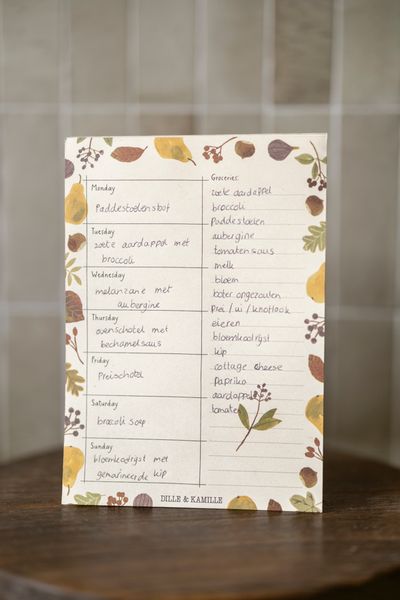 Monday
Paddestoelensoep
Tuesday
zoete aardappel met
broccoli
Wednesday
melanzane met
aubergine
Thursday
ovenschotel met
bechamelsaus
Friday
Preischotel
Saturday
broccoli soep
Sunday
bloemkoolrijst met
gemarineerde kip
Groceries:
zoete aardappel
broccoli
paddestoelen
aubergine
tomatensaus
melk
bloem
boter ongezouten
prei / ui / knoflook
eieren
bloemkoolrijst
kip
cottage cheese
paprika
aardappel
tomate
DILLE & KAMILLE